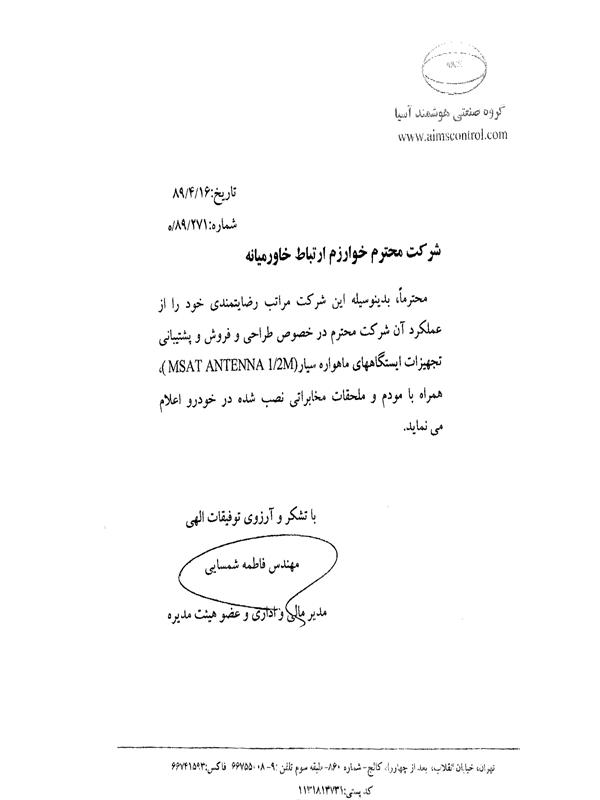 گروه صنعتی هوشمند آسیا
www.aimscontrol.com
تاریخ:۸۹/۴/۱۶
شماره:۰/۸۹/۲۷۱
شرکت محترم خوارزم ارتباط خاورمیانه
محترماً، بدینوسیله این شرکت مراتب رضایتمندی خود را از
عملکرد آن شرکت محترم در خصوص طراحی و فروش و پشتیبانی
تجهیزات ایستگاههای ماهواره سیار(MSAT ANTENNA 1/2M)،
همراه با مودم و ملحقات مخابراتی نصب شده در خودرو اعلام
می نماید.
با تشکر و آرزوی توفیقات الهی
مهندس فاطمه شمسایی
مدیر مالی و اداری و عضو هیئت مدیره
تهران، خیابان انقلاب، بعد از چهارراه کالج- شماره ۸۶۰- طبقه سوم تلفن :۹-۶۶۷۵۵۰۰۸ فاکس:۶۶۷۴۱۵۹۳
کد پستی:۱۱۳۱۸۱۳۷۳۱